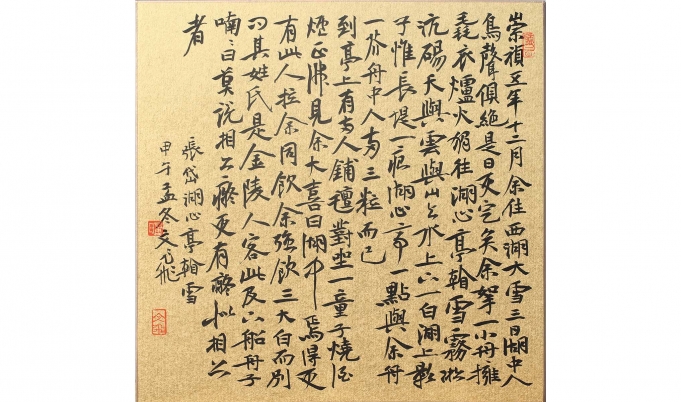 崇禎五年十二月余住西湖大雪三日湖中人
鳥聲俱絕是日更定矣余拏一小舟擁
毳衣爐火獨往湖心亭看雪霧凇
沆碭天與雲與山與水上下一白湖上影
子惟長堤一痕湖心亭一點與余舟
一芥舟中人兩三粒而已
到亭上有兩人鋪氈對坐一童子燒酒
爐正沸見余大喜曰湖中焉得更
有此人拉余同飲余強飲三大白而別
問其姓氏是金陵人客此及下船舟子
喃喃曰莫說相公癡更有癡似相公
者
張岱湖心亭看雪
甲午孟冬文飛